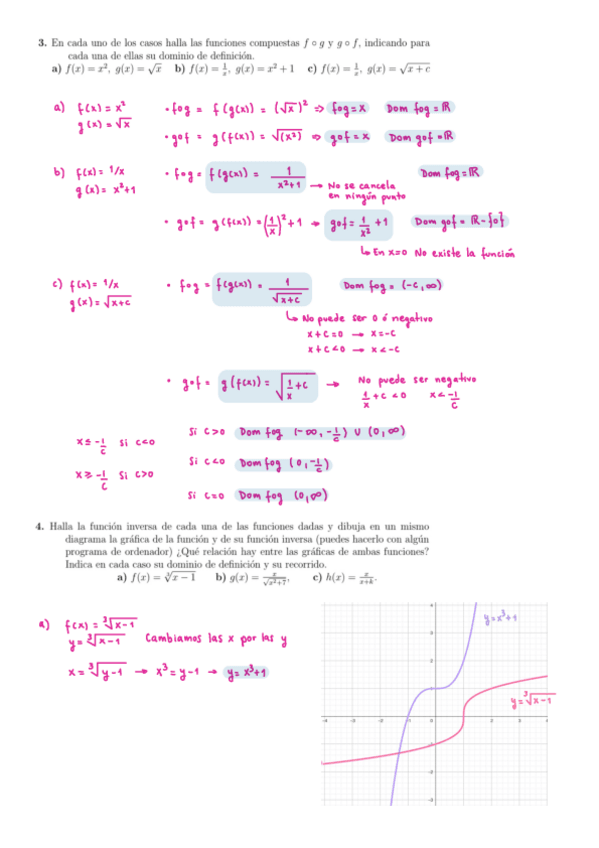 3. En cada uno de los casos halla las funciones compuestas f ∘ g y g ∘ f, indicando para
cada una de ellas su dominio de definición.
a) f(x) = x², g(x) = √x b) f(x) = 1/x, g(x) = x² + 1 c) f(x) = 1/x, g(x) = √(x + c)
a) f(x) = x² • fog = f(g(x)) = (√x)² => fog = x Dom fog = ℝ
g(x) = √x • gof = g(f(x)) = √(x²) => gof = x Dom gof = ℝ
b) f(x) = 1/x • fog = f(g(x)) = 1/(x²+1) → No se cancela Dom fog = ℝ
g(x) = x²+1 en ningún punto
• gof = g(f(x)) = (1/x)² + 1 → gof = 1/x² + 1 Dom gof = ℝ - {0}
↳ En x=0 No existe la función
c) f(x) = 1/x • fog = f(g(x)) = 1/√(x+c) Dom fog = (-c, ∞)
g(x) = √(x+c) ↳ No puede ser 0 ó negativo
x+c=0 → x=-c
x+c<0 → x<-c
• gof = g(f(x)) = √(1/x + c) → No puede ser negativo
1/x + c < 0 x < -1/c
Si c>0 Dom fog (-∞, -1/c) ∪ (0, ∞)
x ≤ -1/c si c<0
Si c<0 Dom fog (0, -1/c)
x ≥ -1/c Si c>0
Si c=0 Dom fog (0, ∞)
4. Halla la función inversa de cada una de las funciones dadas y dibuja en un mismo
diagrama la gráfica de la función y de su función inversa (puedes hacerlo con algún
programa de ordenador) ¿Qué relación hay entre las gráficas de ambas funciones?
Indica en cada caso su dominio de definición y su recorrido.
a) f(x) = ∛(x − 1) b) g(x) = x/√(x²+7), c) h(x) = x/(x+k).
a) f(x) = ∛(x-1)
y = ∛(x-1) Cambiamos las x por las y
x = ∛(y-1) → x³ = y-1 → y = x³+1
y = x³+1
y = ∛(x-1)